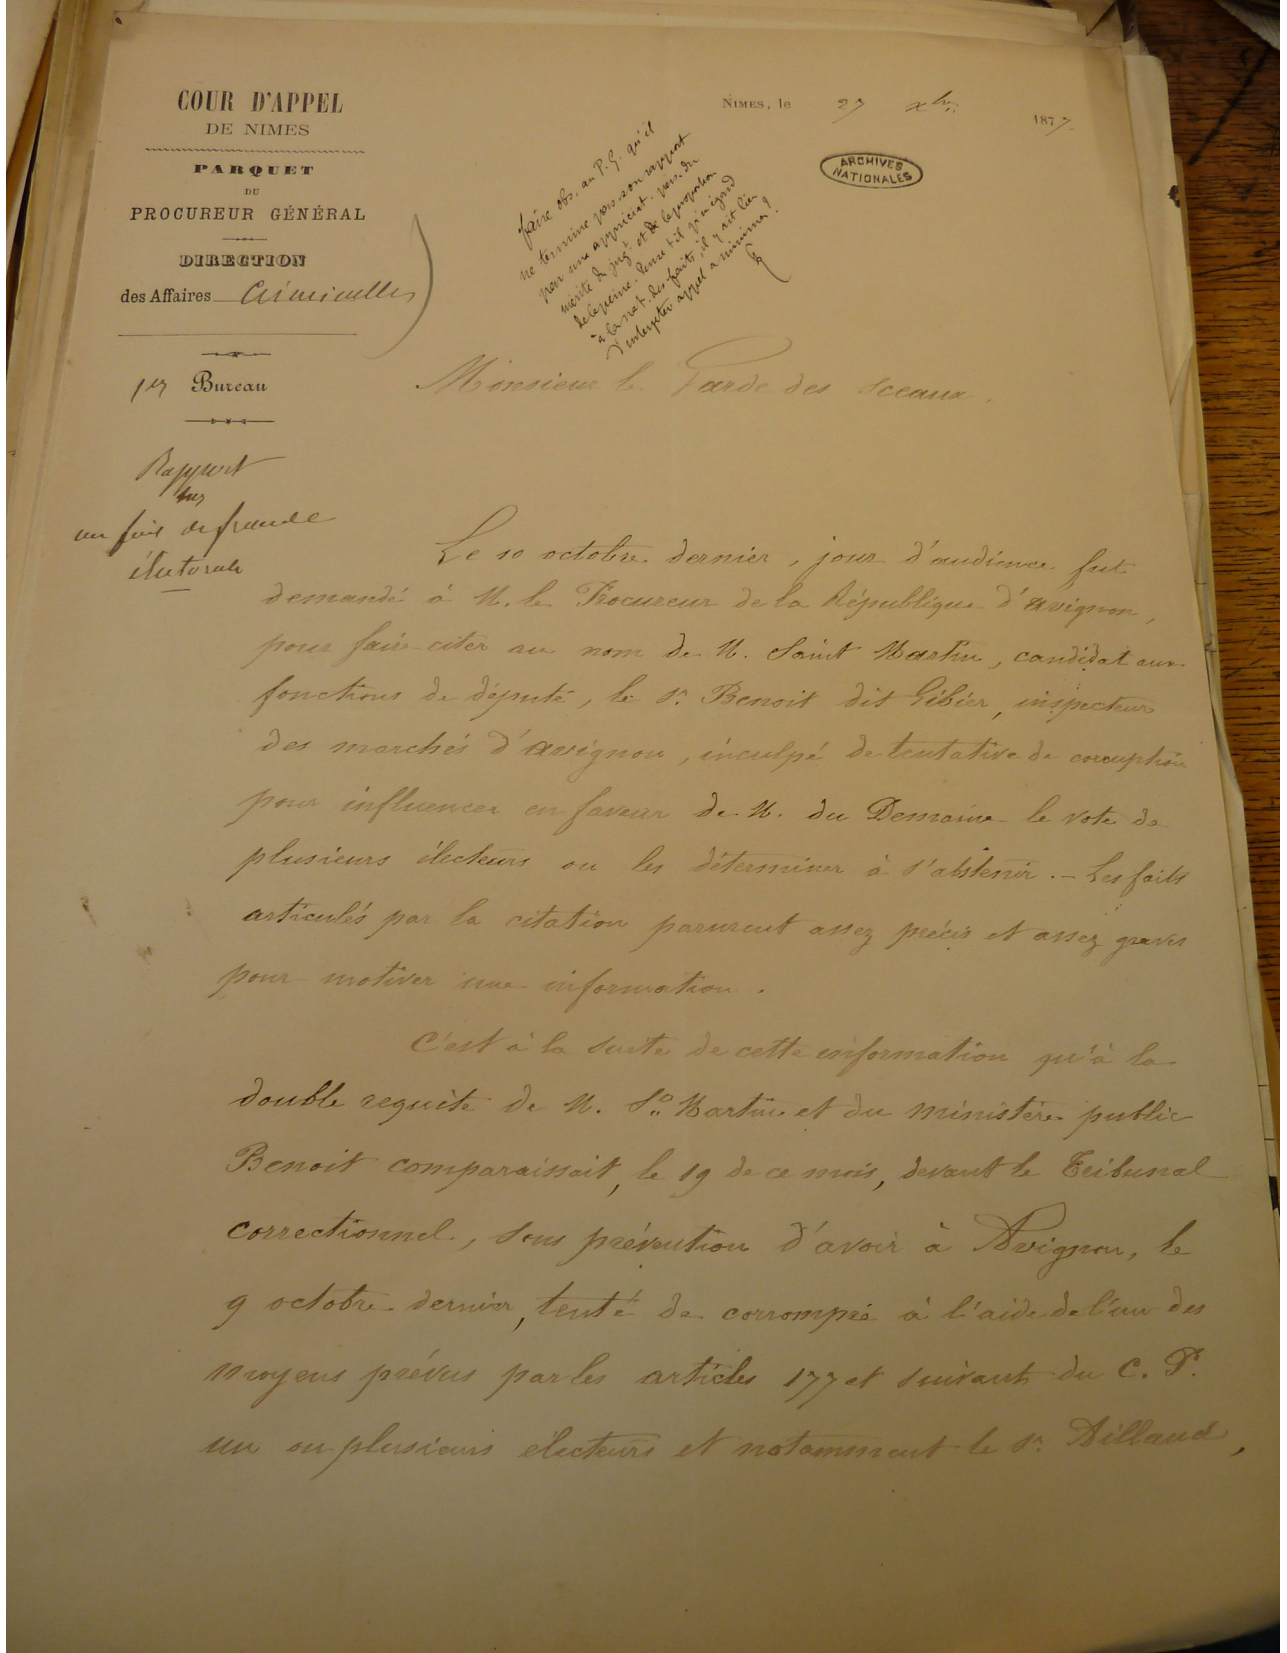 COUR D'APPEL
DE NIMES
PARQUET
DU
PROCUREUR GÉNÉRAL
DIRECTION
des Affaires Criminelles
1er Bureau
Rapport
sur
un fait de fraude
électorale
NIMES, le 27 Xbre 1877.
ARCHIVES
NATIONALES
faire obs. au P. G. qu'il
ne termine pas son rapport
par une appréciat. pers. du
mérite du jugt et de la proportion
de la peine. Pense t'il qu'eu égard
à la nat. des faits, il y ait lieu
d'interjeter appel a minima ?
Monsieur le Garde des Sceaux.
Le 10 octobre dernier, jour d'audience fut
demandé à M. le Procureur de la République d'Avignon,
pour faire citer au nom de M. Saint Martin, candidat aux
fonctions de député, le Sr. Benoit dit Gibier, inspecteur
des marchés d'Avignon, inculpé de tentative de corruption
pour influencer en faveur de M. du Demaine le vote de
plusieurs électeurs ou les déterminer à s'abstenir. – Les faits
articulés par la citation parurent assez précis et assez graves
pour motiver une information.
C'est à la suite de cette information qu'à la
double requête de M. St Martin et du ministère public
Benoit comparaissait, le 19 de ce mois, devant le Tribunal
correctionnel, sous prévention d'avoir à Avignon, le
9 octobre dernier, tenté de corrompre à l'aide de l'un des
moyens prévus par les articles 177 et suivants du C. P.
un ou plusieurs électeurs et notamment le Sr. Aillaud,